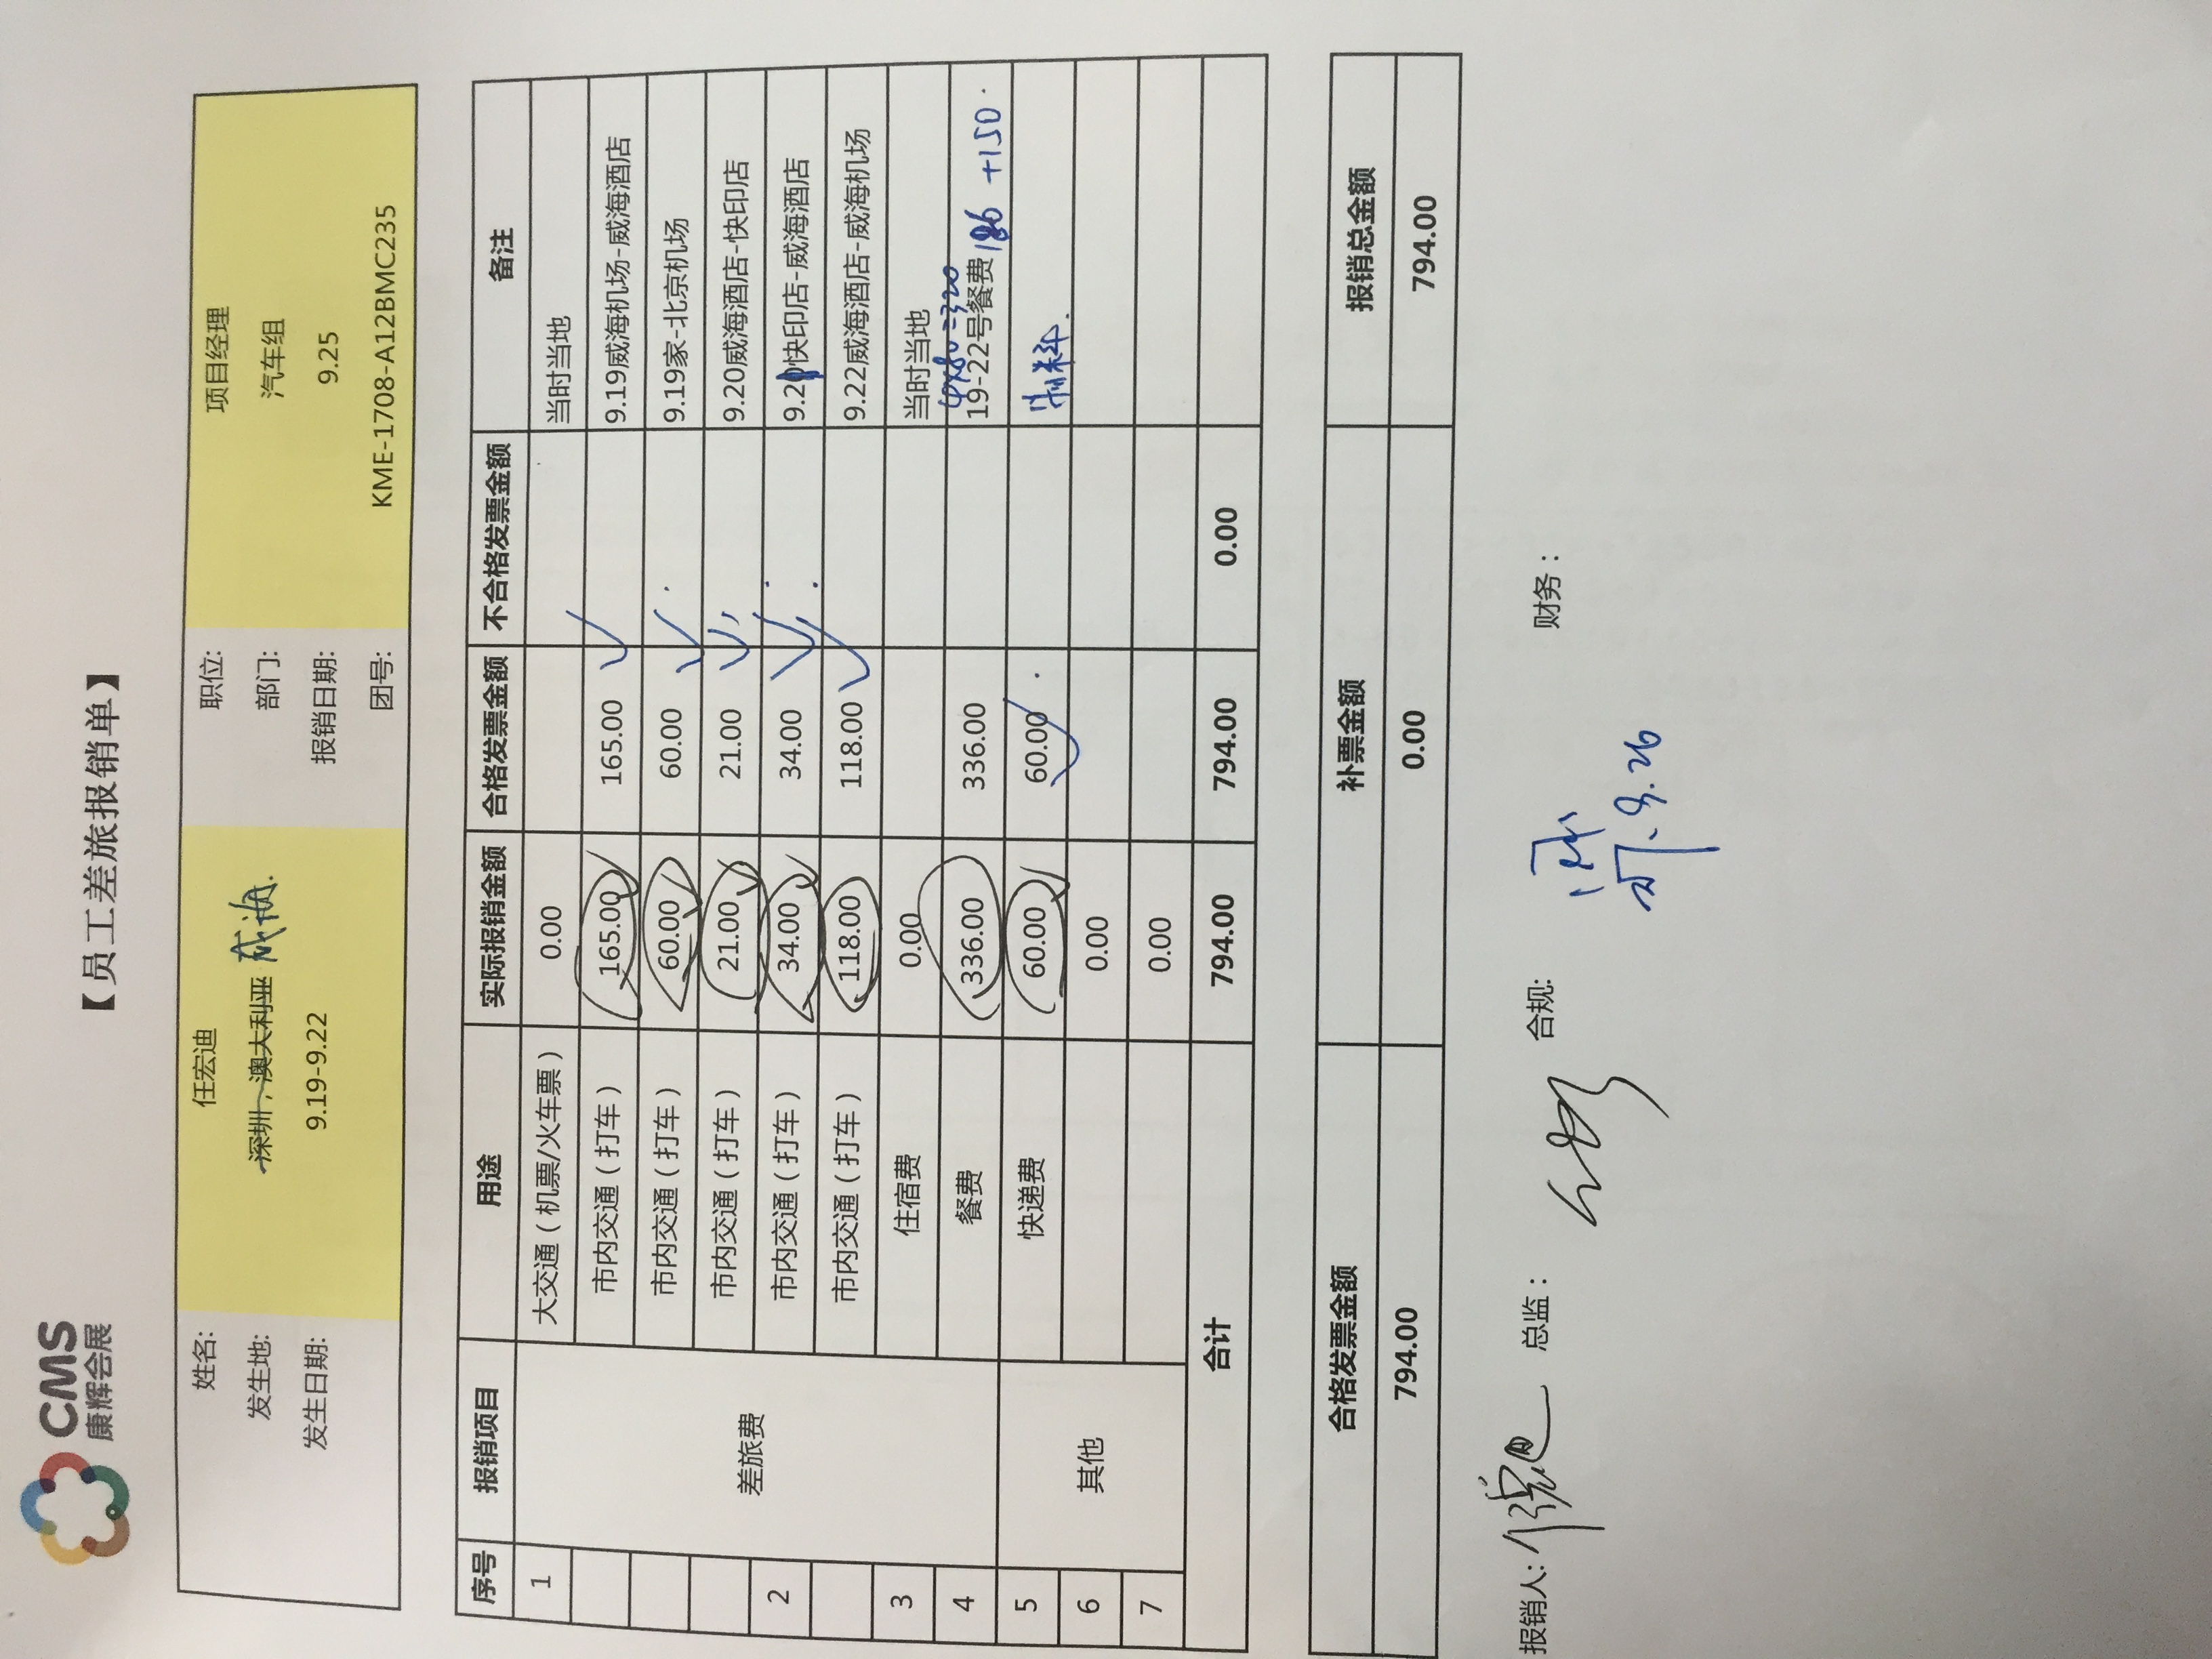 CMS
康辉会展
【员工差旅报销单】
姓名: 任宏迪 职位: 项目经理
发生地: 深圳，澳大利亚 威海. 部门: 汽车组
发生日期: 9.19-9.22 报销日期: 9.25
团号: KME-1708-A12BMC235
序号 报销项目 用途 实际报销金额 合格发票金额 不合格发票金额 备注
1 差旅费 大交通（机票/火车票） 0.00 当时当地
市内交通（打车） 165.00 165.00 9.19威海机场-威海酒店
市内交通（打车） 60.00 60.00 9.19家-北京机场
市内交通（打车） 21.00 21.00 9.20威海酒店-快印店
2 市内交通（打车） 34.00 34.00 9.20快印店-威海酒店
市内交通（打车） 118.00 118.00 9.22威海酒店-威海机场
3 住宿费 0.00 当时当地
4×80=320
4 餐费 336.00 336.00 19-22号餐费 186 +150.
5 其他 快递费 60.00 60.00
6 0.00
7 0.00
合计 794.00 794.00 0.00
合格发票金额 补票金额 报销总金额
794.00 0.00 794.00
报销人: 总监： 合规: 财务：
9.26